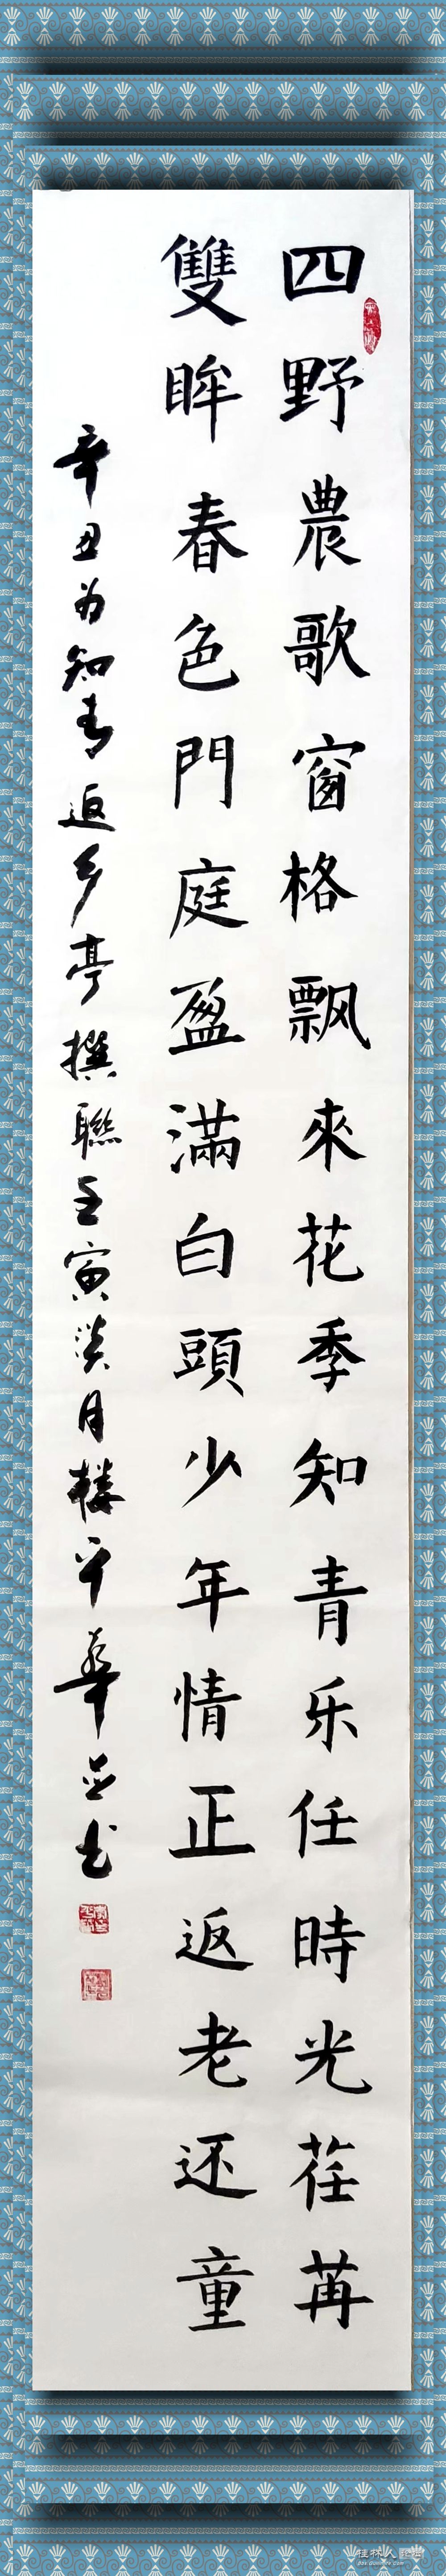 四野農歌窗格飘來花季知青乐任時光荏苒
雙眸春色門庭盈滿白頭少年情正返老还童
辛丑为知青返乡亭撰聯壬寅淡月楼平華并书
桂林人